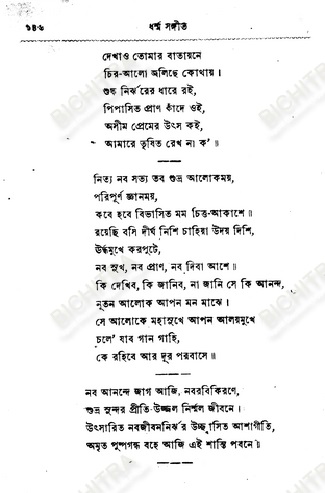 ১৪৬ ধর্ম্ম সঙ্গীত
দেখাও তোমার বাতায়নে
চির-আলো জলিছে কোথায়।
শুষ্ক নির্ঝরের ধারে রই,
পিপাসিত প্রাণ কাঁদে ওই,
অসীম প্রেমের উৎস কই,
আমারে তৃষিত রেখ না ক’॥
নিত্য নব সত্য তব শুভ্র আলোকময়,
পরিপূর্ণ জ্ঞানময়,
কবে হবে বিভাসিত মম চিত্ত-আকাশে॥
রয়েছি বসি দীর্ঘ নিশি চাহিয়া উদয় দিশি,
ঊর্দ্ধমুখে করপুটে,
নব সুখ, নব প্রাণ, নব দিবা আশে॥
কি দেখিব, কি জানিব, না জানি সে কি আনন্দ,
নূতন আলোক আপন মন মাঝে।
সে আলোকে মহাসুখে আপন আলয়মুখে
চলে’ যাব গান গাহি,
কে রহিবে আর দূর পরবাসে॥
নব আনন্দে জাগ আজি, নবরবিকিরণে,
শুভ্র সুন্দর প্রীতি-উজ্জল নির্ম্মল জীবনে।
উৎসারিত নবজীবননির্ঝর উচ্ছ্বাসিত আশাগীতি,
অমৃত পুষ্পগন্ধ বহে আজি এই শান্তি পবনে॥
BICHITRA